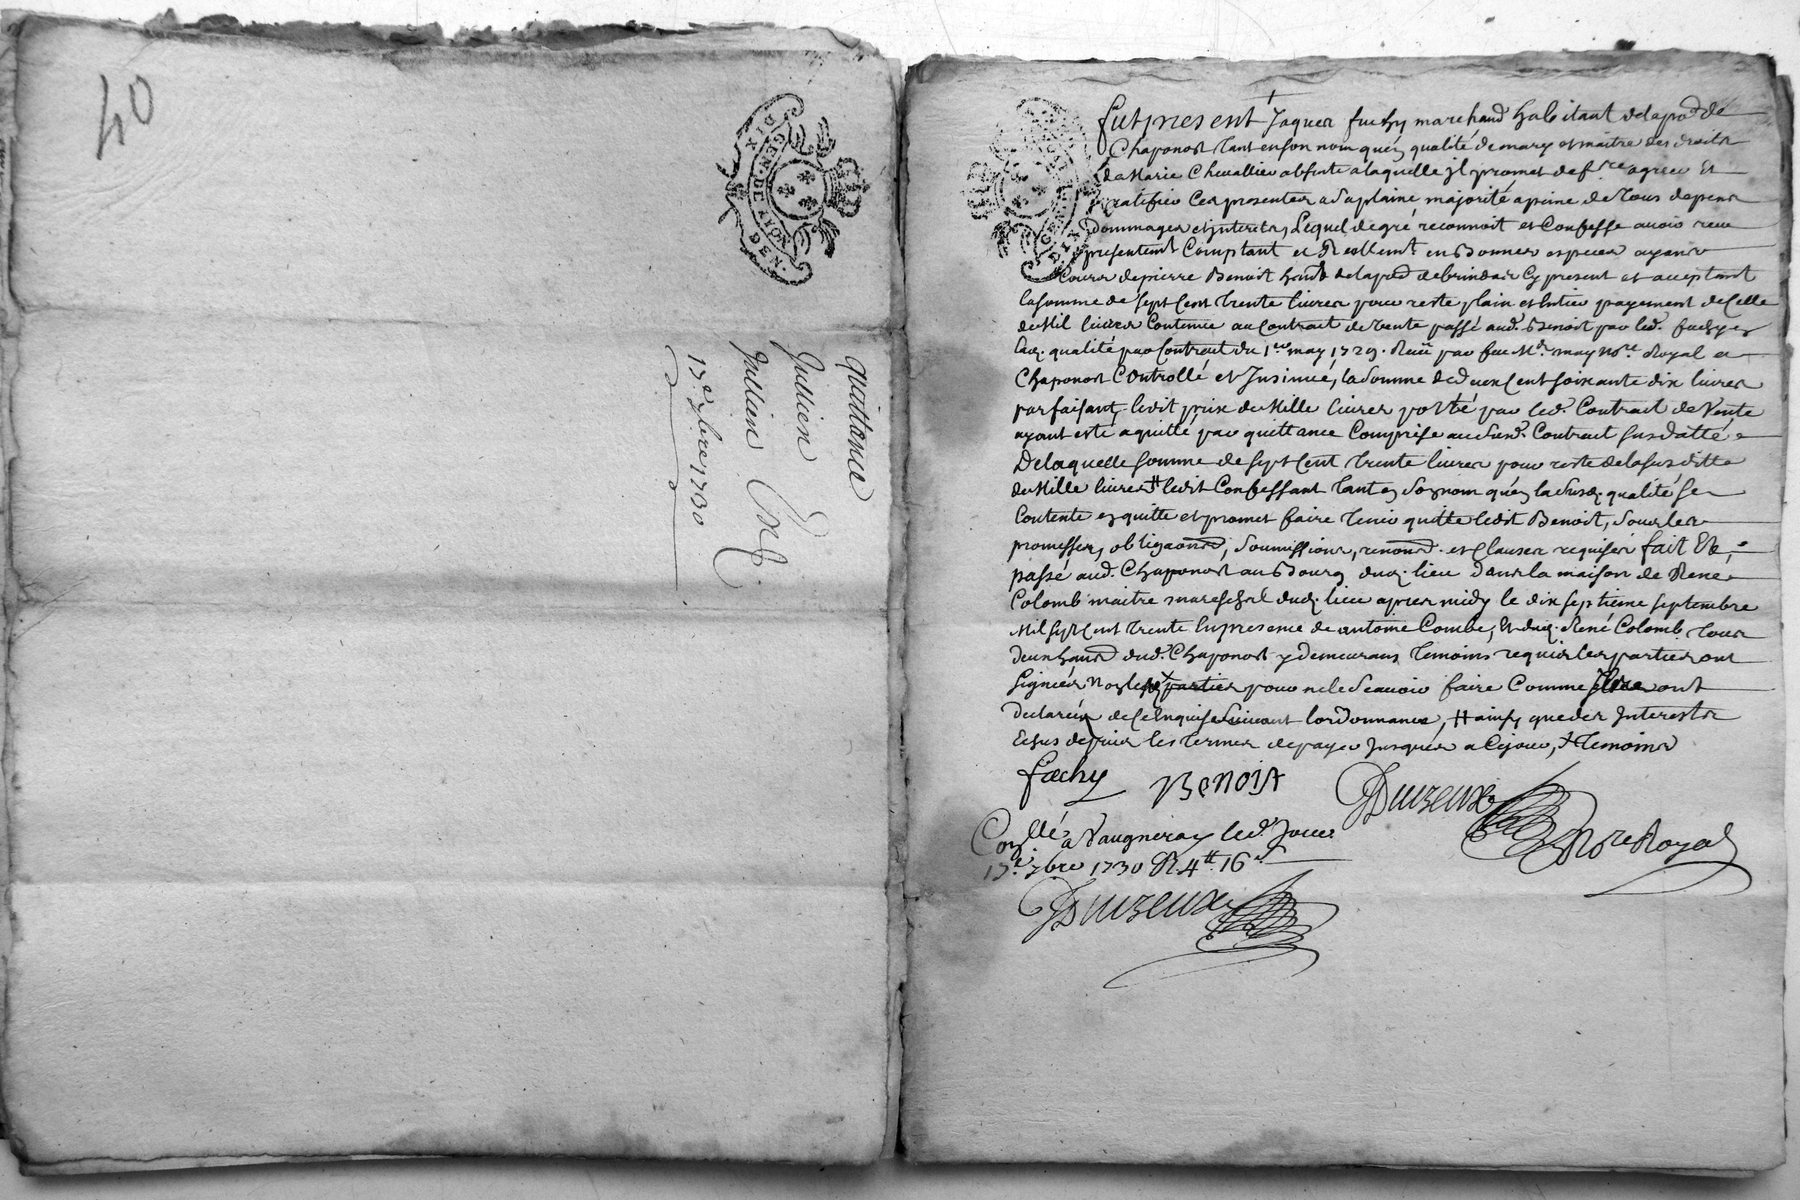 40
GEN. DE LYON DIX DEN.
quittance
Jullien
Jullien
17e 7bre 1730
fut present Jaques fuchy marchand habitant de la pard de
Chaponost tant en son nom qu'en qualité de mary et maitre des droits
de Marie Chevallier absente a laquelle jl promet de fre agreer et
ratifier Ces presentes a sa plaine majorité a peine de tous depens
Dommages et interets, Lequel de gré reconnoit et Confesse avoir receu
presentemt Comptant et Reellemt en Bonnes especes ayants
Cours de pierre Benoist habt de la pard de brindas Cy present et acceptant
la somme de sept Cent trente livres pour reste plain et entier payement de Celle
de Mil livres Contenue au Contrat de vente passé aud. Benoit par led. fuchy es
qualité par Contrat du 1er may 1729. Receu par feu Me may nore Royal a
Chaponost Controllé et Insinué, la Somme de deux Cent soixante dix livres
parfaisant ledit prix de Mille livres porté par led. Contrat de Vente
ayant esté aquitté par quittance Comprise au susd. Contrat susdatté
De laquelle somme de sept Cent trente livres pour reste de la susditte
de Mille livres # ledit Confessant tant en son nom qu'en la susd. qualité se
Contente en quitte et promet faire tenir quitte ledit Benoit, sous les
promesses, obligaons, soumissions, renons. et Clauses requises fait Et
passé aud. Chaponost au Bourg dud. lieu Dans la maison de René
Colomb maitre mareschal dud. lieu apres midy le dix septieme septembre
Mil sept Cent trente En presence de antoine Combe, Et dud. René Colomb tous
deux habts dud. Chaponost y demeurans temoins requis les parties ont
signées Non les parties pour ne le scavoir faire Comme ont
declarées de Ce Enquis suivant lordonnance, # ainsy que des Interests
Echus depuis les termes de payer Jusques a Cejour, + temoins
fuchy Benoist Duizeux
Nore Royal
Conllé a Vaugneray led. Jour
17e 7bre 1730 R 4tt 16s
Duizeux